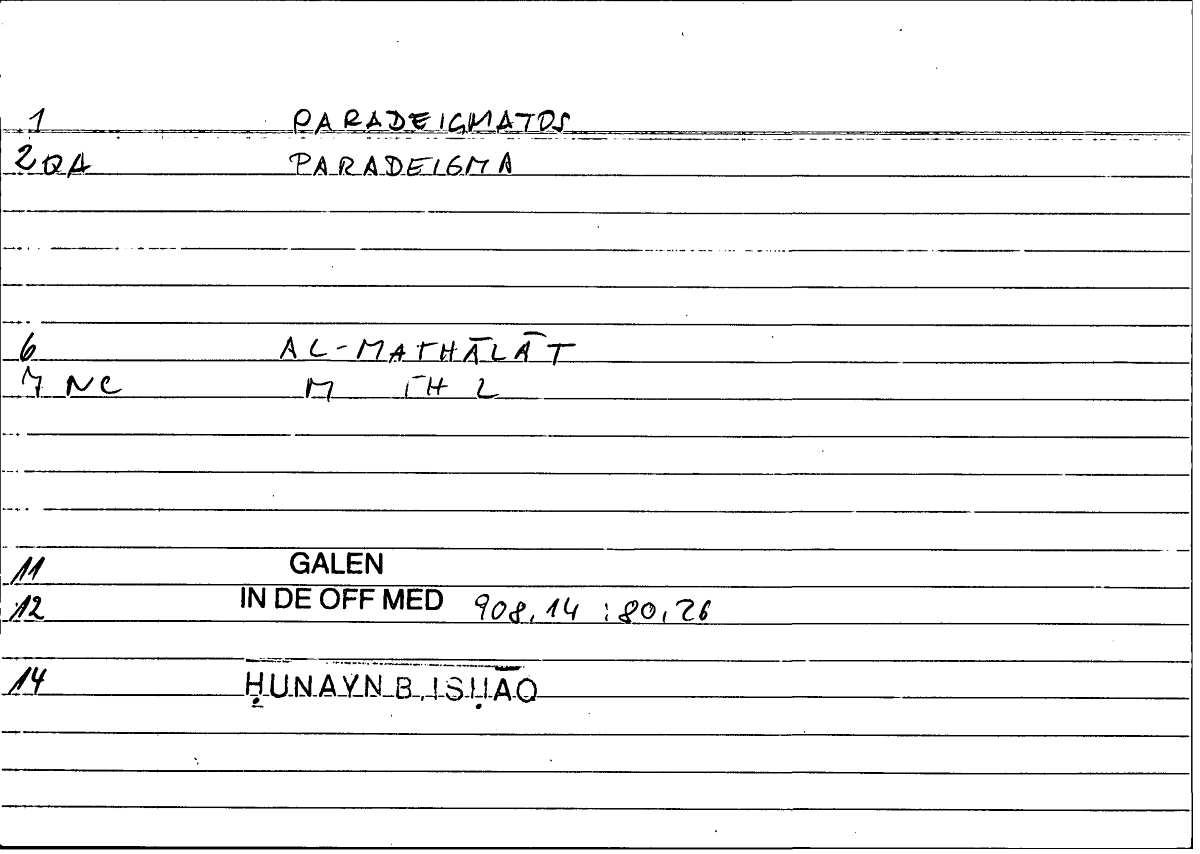 1 PARADEIGMATOS
2 QA PARADEIGMA
6 AL-MATHĀLĀT
7 NC M TH L
11 GALEN
12 IN DE OFF MED 908,14 : 80,26
14 ḤUNAYN B. ISḤĀQ